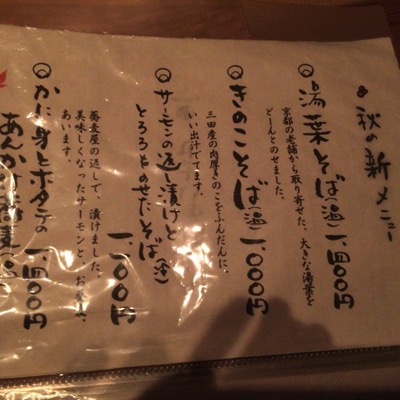 秋の新メニュー
湯葉そば(温)一、四〇〇円
京都の老舗から取り寄せた、大きな湯葉を
どーんとのせました。
きのこそば(温)一、〇〇〇円
三田産の肉厚きのこをふんだんに。
いい出汁でてます。
サーモンの返し漬けと
とろろをのせたそば(冷)
一、一〇〇円
蕎麦屋の返しで、漬けました。
美味しくなったサーモンと、お蕎麦、
あいます。
かに身とホタテの
あんかけ蕎麦(温)一、四〇〇円